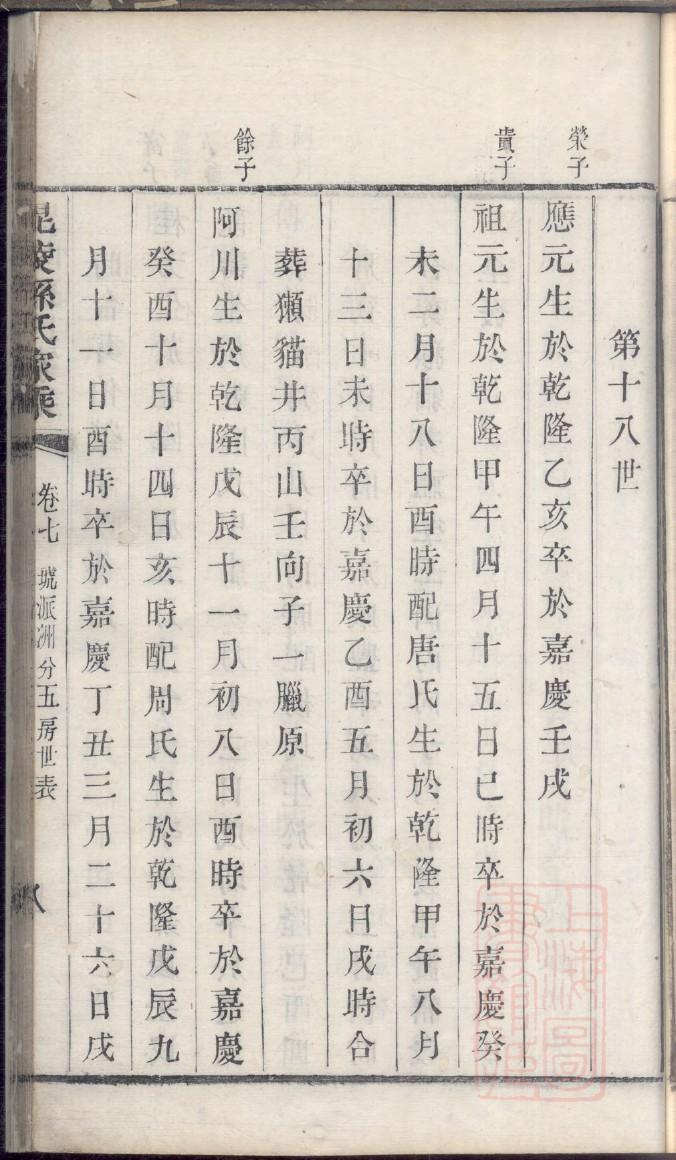 第十八世
榮子
應元生於乾隆乙亥卒於嘉慶壬戌
貴子
祖元生於乾隆甲午四月十五日巳時卒於嘉慶癸
未二月十八日酉時配唐氏生於乾隆甲午八月
十三日未時卒於嘉慶乙酉五月初六日戌時合
葬獺貓井丙山壬向子一臘原
餘子
阿川生於乾隆戊辰十一月初八日酉時卒於嘉慶
癸酉十月十四日亥時配周氏生於乾隆戊辰九
月十一日酉時卒於嘉慶丁丑三月二十六日戌
毘陵孫氏家乘
卷七
號派洲分五房世表
八
上海圖書館藏